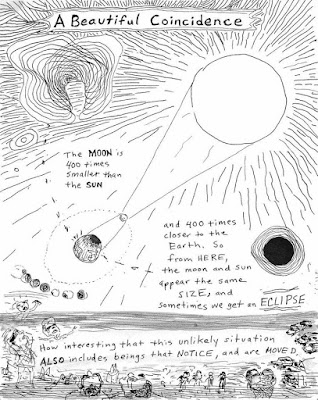 A Beautiful Coincidence
The MOON is
400 times
smaller than
the SUN
and 400 times
closer to the
Earth. So
from HERE,
the moon and sun
appear the same
SIZE, and
sometimes we get an ECLIPSE.
How interesting that this unlikely situation
ALSO includes beings that NOTICE, and are MOVED.